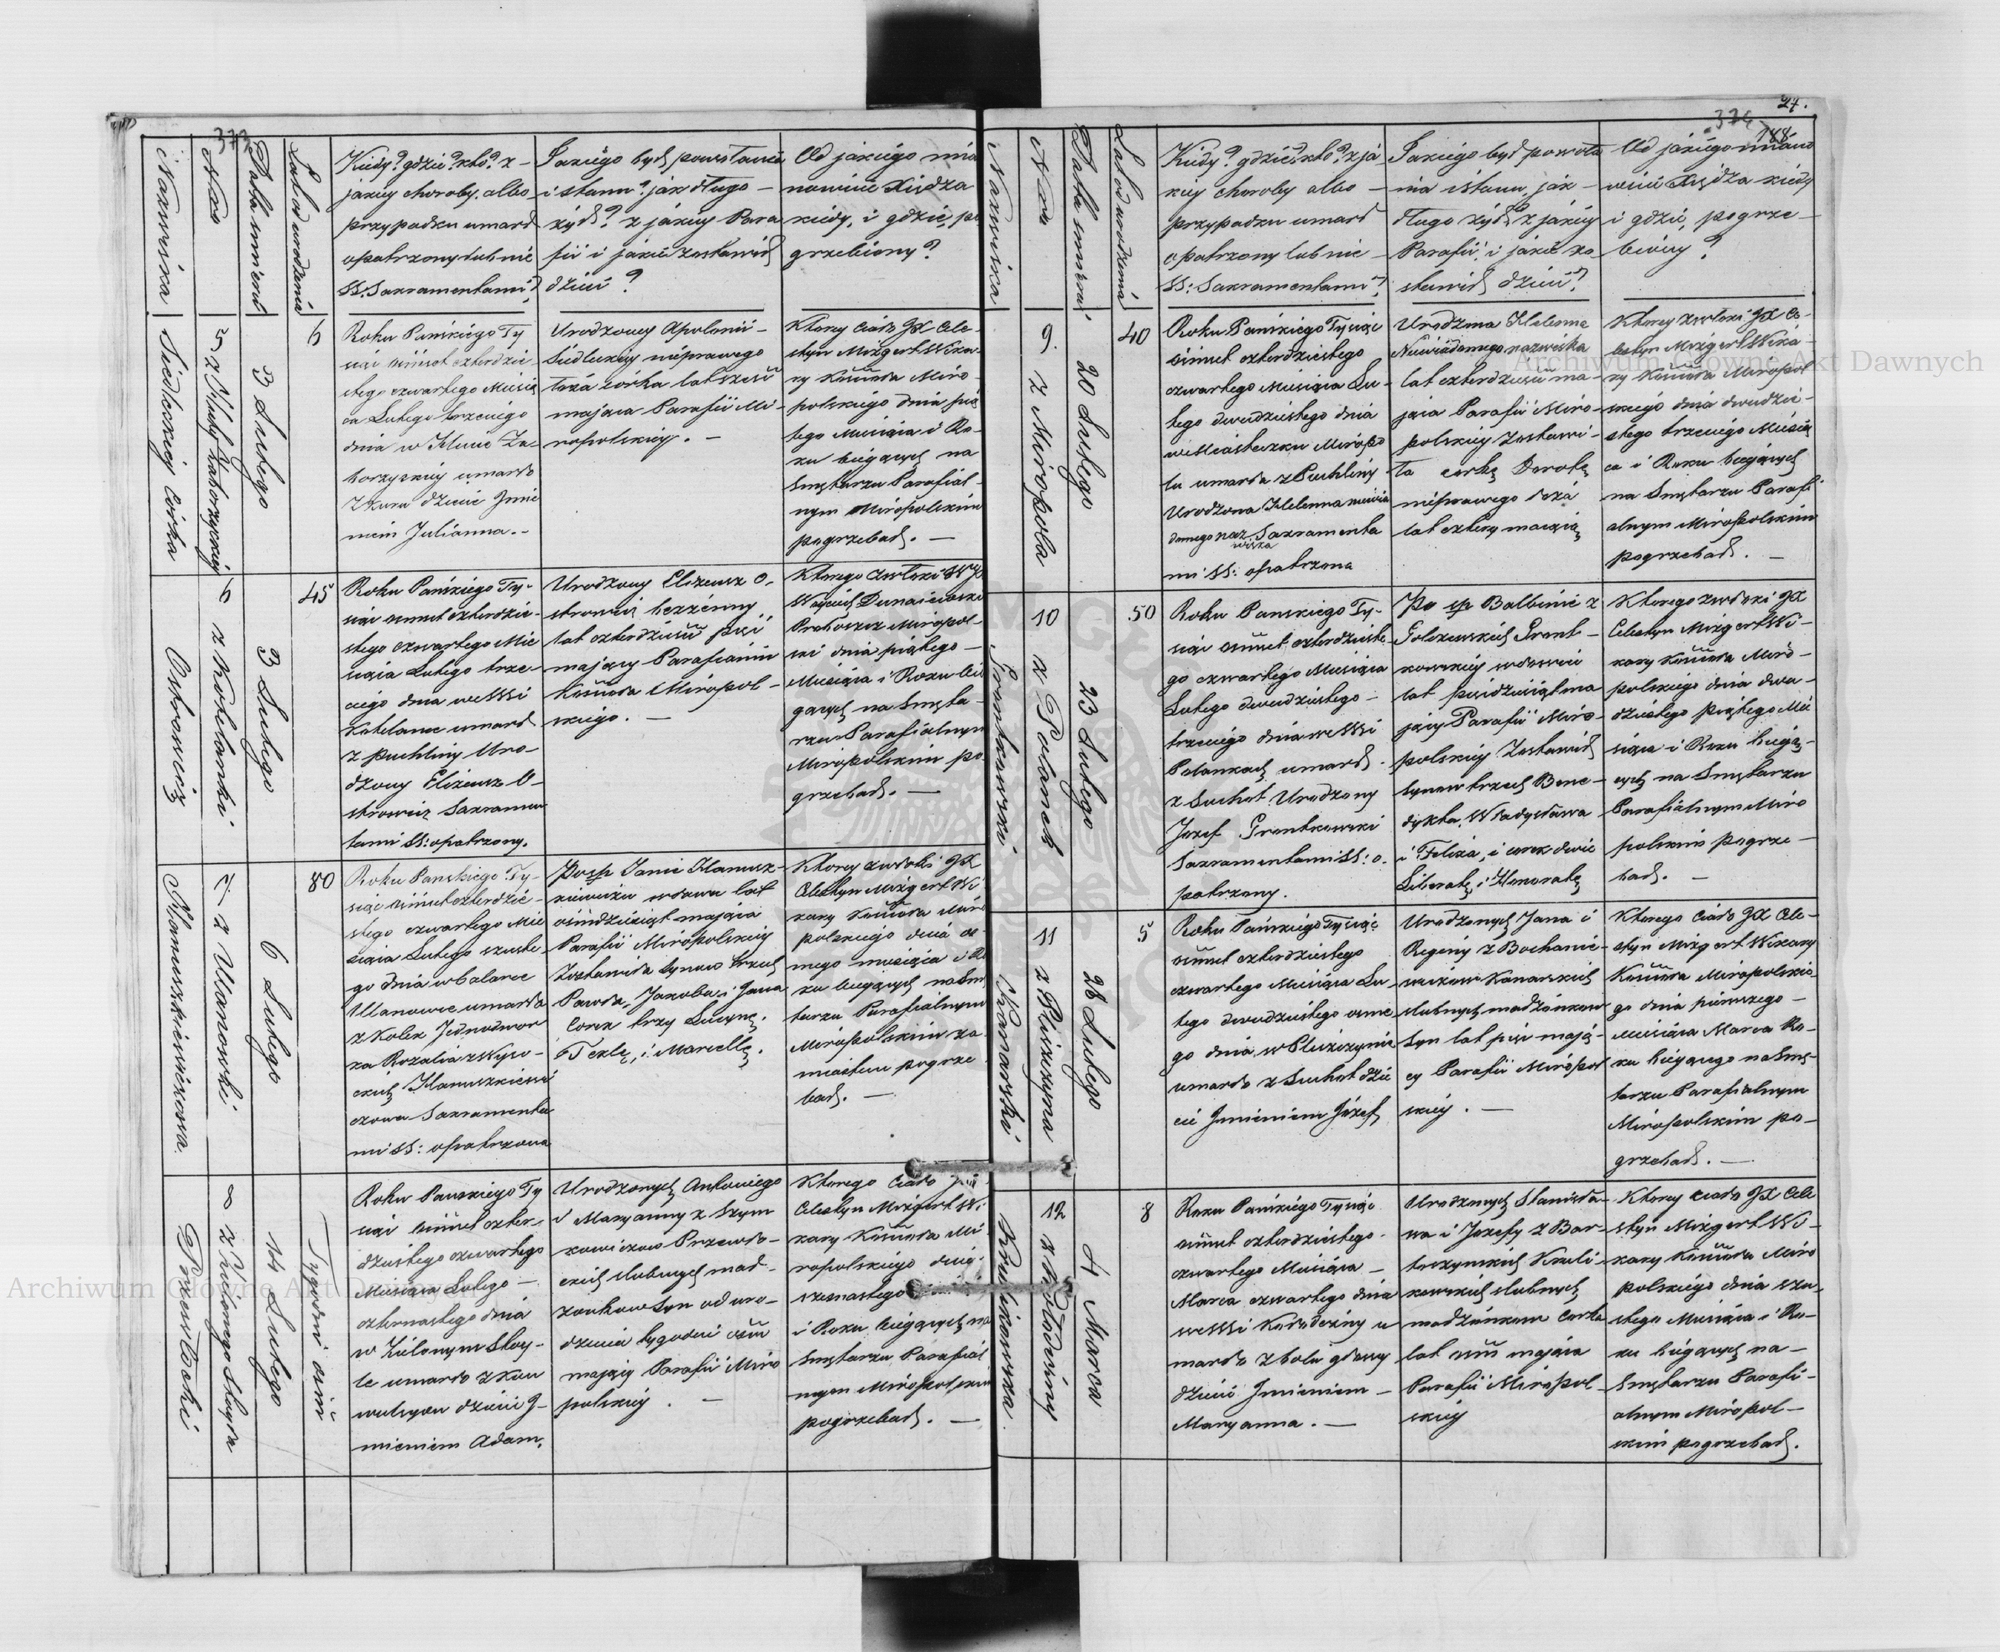 373
Nazwiska
Nro
Data smierci
Lat od urodzenia
Kiedy? gdzie? kto? z
jakiey choroby, albo
przypadku umarł
opatrzony lub nie
SS: Sakramentami?
Jakiego był powołania
i stanu? jak długo –
żył? z jakiey Para
fii i jakie zostawił
dzieci?
Od jakiego mia
nowicie Xiędza
kiedy, i gdzie, po
grzebiony?
Siedleckiey córka
5
3 Lutego
6
Roku Pańskiego Ty
siąc ośmset czterdzie
stego czwartego Miesią
ca Lutego trzeciego
dnia w
umarła
z kuru dziecie Jmie
niem Julianna. –
Urodzoney Apolonii –
Siedleckiey nieprawego
łoża córka lat sześć
mająca Parafii Mi-
ropolskiey. –
Ktorey ciało JX Cele-
styn Mizgert Wika-
ry Kościoła Miro-
polskiego dnia pią
tego Miesiąca i Ro-
ku bieżących na
Smętarzu Parafial-
nym Miropolskim
pogrzebał. –
Ostrowicz
6 z Kotelanki
3 Lutego
45
Roku Pańskiego Ty-
siąc ośmset czterdzie-
stego czwartego Mie
siąca Lutego trze-
ciego dnia we Wsi
Kotelance umarł
z puchliny Uro-
dzony Elizeusz O-
strowicz Sakramen
tami SS: opatrzony.
Urodzony Elizeusz O-
strowicz bezżenny
lat czterdzieści pięć
mający Parafianin
Kościoła Miropol-
skiego. –
Ktorego zwłoki WJX
Wojciech Dunaiewski
Proboszcz Miropol-
ski dnia piątego –
Miesiąca i Roku bie
żących na Smęta-
rzu Parafialnym
Miropolskim po
grzebał. –
Hanuszkiewiczowa
7 z Ulanowki
6 Lutego
80
Roku Pańskiego Ty-
siąc ośmset czterdzie-
stego czwartego Mie
siąca Lutego szoste-
go dnia
Ulanowce umarła
z Kolek Jednodwor
ka Rozalia z Wyso-
ckich Hanuszkiewi
czowa Sakramenta
mi SS: opatrzona
Po śp Janie Hanusz-
kiewiczu wdowa lat
ośmdziesiąt mająca
Parafii Miropolskiey
Zostawiła synow trzech
Pawła, Jakoba, i Jana
Corek trzy Lucynę,
Teklę, i Marcellę.
Ktorey zwłoki JX
Celestyn Mizgert Wi
kary Kościoła Miro
polskiego dnia os-
mego miesiąca i Ro
ku bieżących na Smę
tarzu Parafialnym
Miropolskim za
miastem pogrze
bał. –
Przewłocki
8 z Zielonego Słupa
14 Lutego
Tygodni ośm
Roku Pańskiego Ty
siąc ośmset czter-
dziestego czwartego
Miesiąca Lutego –
czternastego dnia
w Zielonym Słup-
ie umarło z kon
wulsyow dziecie J-
mieniem Adam.
Urodzonych Antoniego
i Maryanny z Szym
kowiczow Przewło-
ckich slubnych mał-
żonkow syn od uro-
dzenia tygodni ośm
mający Parafii Miro
polskiey. –
Ktorego ciało JX
Celestyn Mizgert Wi
kary Kościoła Mi
ropolskiego dnia
szesnastego
i Roku bieżących na
Smętarzu Parafial
nym Miropolskim
pogrzebał. –
27.
374
188
Nazwiska
Nro
Data smierci
Lat od urodzenia
Kiedy? gdzie? kto? z ja
kiey choroby albo –
przypadku umarł
opatrzony lub nie –
SS: Sakramentami?
Jakiego był powoła
nia i stanu, jak –
długo żył? z jakiey
Parafii, i jakie zo
stawił dzieci?
Od jakiego miano
wicie Xiędza kiedy
i gdzie, pogrze-
biony?
9. z Miropola
20 Lutego
40
Roku Pańskiego Tysiąc
ośmset czterdziestego
czwartego Miesiąca Lu-
tego dwudziestego dnia
w Miasteczku Miropo
lu umarła z Puchliny
Urodzona Helenna niewia
domego naz
wiska
Sakramenta
mi SS: opatrzona
Urodzona Helenna
Niewiadomego nazwiska
lat czterdzieści ma-
jąca Parafii Miro-
polskiey Zostawi-
ła corkę Dorotę
nieprawego łoża
lat cztery mającą
Ktorey zwłoki JX Ce-
lestyn Mizgert Wika-
ry Kościoła Miropol
skiego dnia dwudzie-
stego trzeciego Miesią
ca i Roku bieżących
na Smętarzu Parafi
alnym Miropolskim
pogrzebał. –
10 z Polanek
23 Lutego
50
Roku Pańskiego Ty-
siąc ośmset czterdzieste-
go czwartego Miesiąca
Lutego dwudziestego –
trzeciego dnia we Wsi
Polankach umarł
z Suchot Urodzony
Jozef
Sakramentami SS: o-
patrzony.
Po śp Balbinie z
lat pięćdziesiąt ma
jący Parafii Miro-
polskiey Zostawił
synow trzech Bene-
dykta, Władysława
i Felixa, i corek dwie
Liberatę, i Honoratę
Ktorego zwłoki JX
Celestyn Mizgert Wi-
kary Kościoła Miro-
polskiego dnia dwu-
dziestego piątego Mie
siąca i Roku bieżą-
cych na Smętarzu
Parafialnym Miro
polskim pogrze-
bał. –
11
28 Lutego
5
Roku Pańskiego Tysiąc
ośmset czterdziestego
czwartego Miesiąca Lu-
tego dwudziestego osme
go dnia
umarło z Suchot dzie
cie Jmieniem Józef
Urodzonych Jana i
Reginy z Bochanie-
wiczow
slubnych małżonkow
syn lat pięć mają-
cy Parafii Miropol
skiey. –
Ktorego ciało JX Cele-
styn Mizgert Wikary
Kościoła Miropolskie
go dnia pierwszego –
Miesiąca Marca Ro-
ku bieżącego na Smę-
tarzu Parafialnym
Miropolskim po-
grzebał. –
12
4 Marca
8
Roku Pańskiego Tysiąc
ośmset czterdziestego
czwartego Miesiąca –
Marca czwartego dnia
we Wsi
u
marła z bolu głowy
dziecie Jmieniem –
Maryanna. –
Urodzonych Stanisła-
wa i Jozefy z Bar-
kowskich slubnych
małżonkow corka
lat ośm mająca
Parafii Miropol-
skiey
Ktorey ciało JX Cele
styn Mizgert Wi-
kary Kościoła Miro
polskiego dnia szo-
stego Miesiąca i Ro-
ku bieżących na –
Smętarzu Parafi-
alnym Miropol-
skim pogrzebał.
Archiwum Główne Akt Dawnych
Archiwum Główne Akt Dawnych